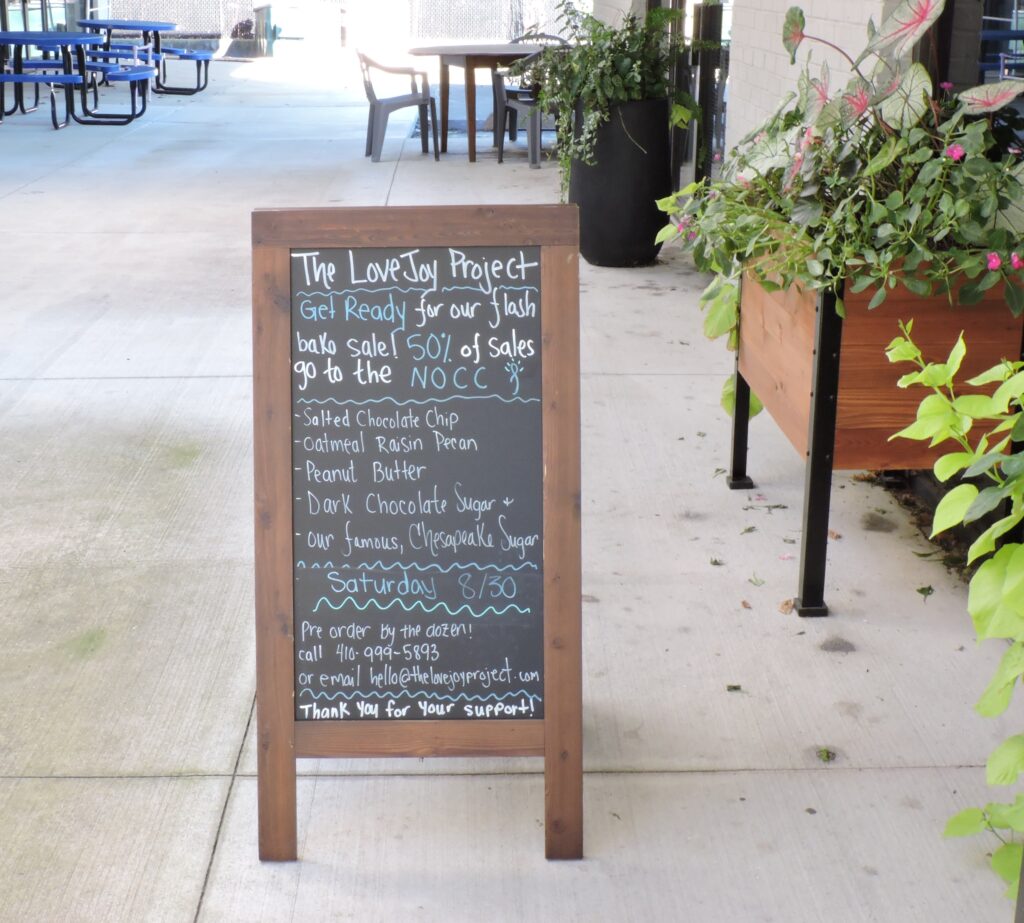 The LoveJoy Project
Get Ready for our flash
bake sale! 50% of sales
go to the NOCC
- Salted Chocolate Chip
- Oatmeal Raisin Pecan
- Peanut Butter
- Dark Chocolate Sugar +
- our famous, Chesapeake Sugar
Saturday 8/30
Pre order by the dozen!
call 410-999-5893
or email hello@thelovejoyproject.com
Thank you for your support!